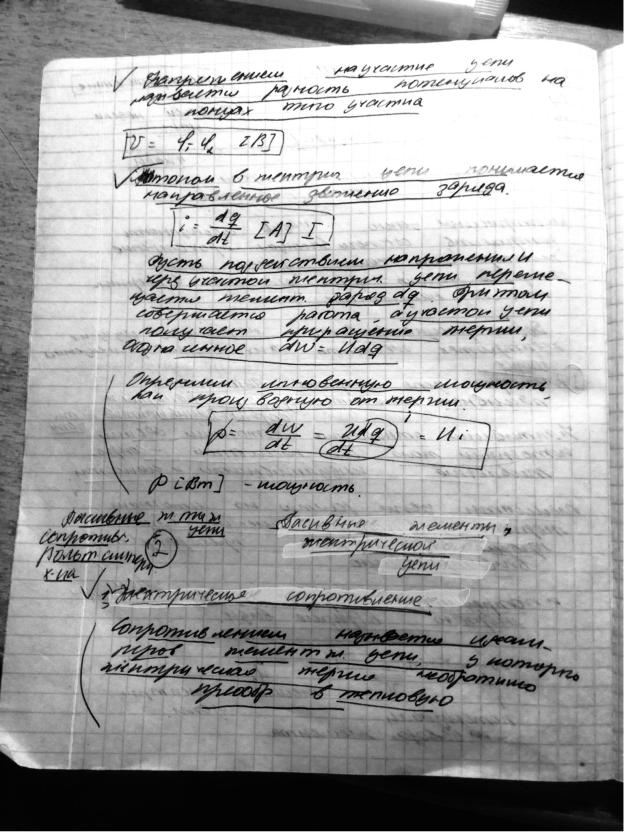 Напряжением на участке цепи
называется разность потенциалов на
концах того участка
U = φ₁-φ₂ [В]
током в электрич цепи понимается
направленное движение заряда.
i = dq/dt [А] I
Пусть под действием напряжения U
через участок электрич. цепи переме-
щается элемент. заряд dq. При этом
совершается работа, а участок цепи
получает приращение энергии,
dW = Udq
Определим мгновенную мощность,
как производную от энергии.
p = dW/dt = Udq/dt = Ui
p [Вт] - мощность.
Пассивные эл цепи
сопротивл.
Вольт ампер
х-ка
2
Пассивные элементы
электрической
цепи
1) Электрическое сопротивление.
Сопротивлением называется идеали-
элемент эл цепи, у которого
электрическая энергия необратимо
преобр в тепловую